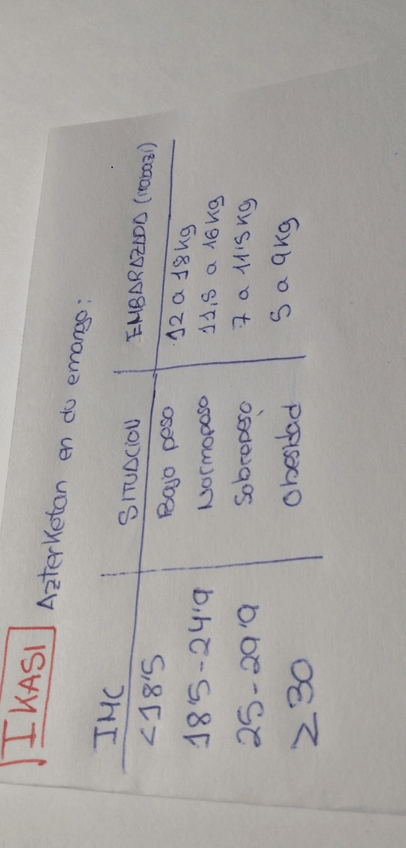 IKASI Azterketan ez du emango:
IMC SITUACION EMBARAZADA (irabazi)
<18'5 Bajo peso 12 a 18 kg
18'5-24'9 Normopeso 11,5 a 16 kg
25-29'9 Sobrepeso 7 a 11'5 kg
≥30 Obesidad 5 a 9 kg